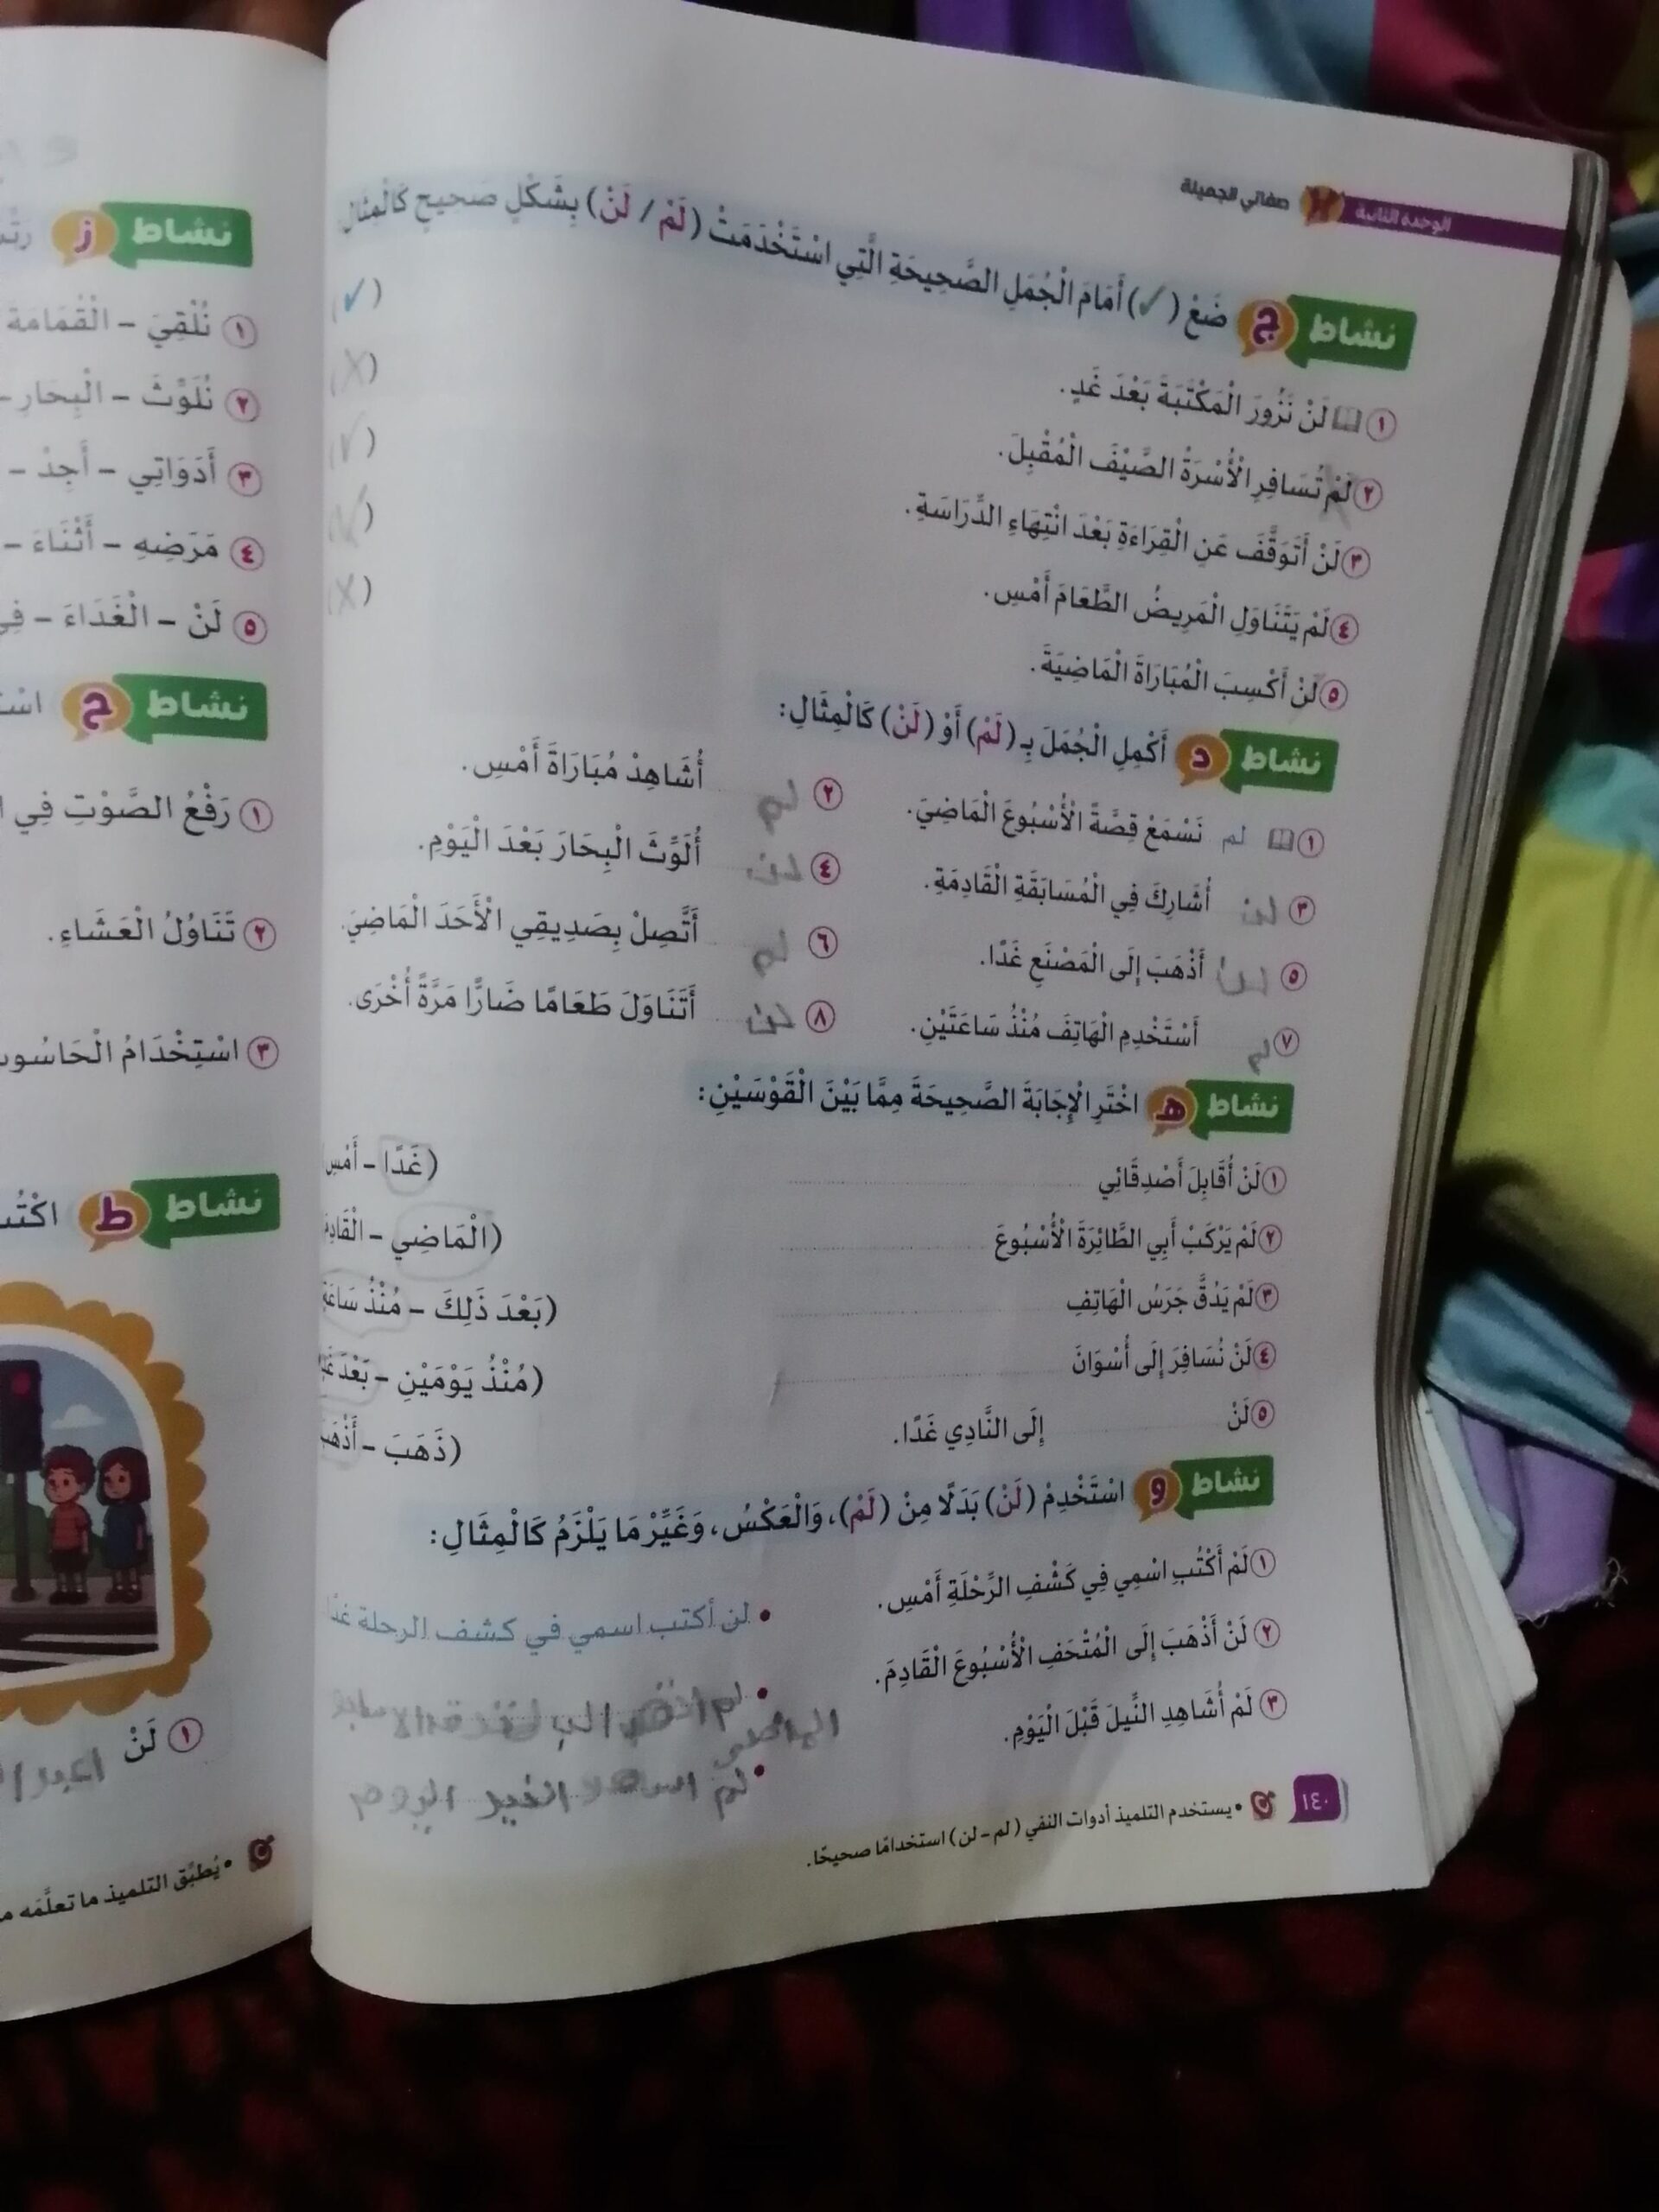 الوحدة الثانية صفاتي الجميلة
نشاط ج ضَعْ (✓) أَمَامَ الْجُمَلِ الصَّحِيحَةِ الَّتِي اسْتَخْدَمَتْ (لَمْ / لَنْ) بِشَكْلٍ صَحِيحٍ كَالْمِثَالِ
١ لَنْ نَزُورَ الْمَكْتَبَةَ بَعْدَ غَدٍ. (✓)
٢ لَمْ تُسَافِرِ الْأُسْرَةُ الصَّيْفَ الْمُقْبِلَ. (X)
٣ لَنْ أَتَوَقَّفَ عَنِ الْقِرَاءَةِ بَعْدَ انْتِهَاءِ الدِّرَاسَةِ. (✓)
٤ لَمْ يَتَنَاوَلِ الْمَرِيضُ الطَّعَامَ أَمْسِ. (✓)
٥ لَنْ أَكْسِبَ الْمُبَارَاةَ الْمَاضِيَةَ. (X)
نشاط د أَكْمِلِ الْجُمَلَ بِـ (لَمْ) أَوْ (لَنْ) كَالْمِثَالِ:
١ لم نَسْمَعْ قِصَّةً الْأُسْبُوعَ الْمَاضِيَ. ٢ لم أُشَاهِدْ مُبَارَاةَ أَمْسِ.
٣ لن أُشَارِكَ فِي الْمُسَابَقَةِ الْقَادِمَةِ. ٤ لن أُلَوِّثَ الْبِحَارَ بَعْدَ الْيَوْمِ.
٥ لن أَذْهَبَ إِلَى الْمَصْنَعِ غَدًا. ٦ لم أَتَّصِلْ بِصَدِيقِي الْأَحَدَ الْمَاضِيَ.
٧ لم أَسْتَخْدِمِ الْهَاتِفَ مُنْذُ سَاعَتَيْنِ. ٨ لن أَتَنَاوَلَ طَعَامًا ضَارًّا مَرَّةً أُخْرَى.
نشاط هـ اخْتَرِ الْإِجَابَةَ الصَّحِيحَةَ مِمَّا بَيْنَ الْقَوْسَيْنِ:
١ لَنْ أُقَابِلَ أَصْدِقَائِي (غَدًا - أَمْسِ
٢ لَمْ يَرْكَبْ أَبِي الطَّائِرَةَ الْأُسْبُوعَ (الْمَاضِي -
٣ لَمْ يَدُقَّ جَرَسُ الْهَاتِفِ (بَعْدَ ذَلِكَ - مُنْذُ سَاعَةٍ
٤ لَنْ نُسَافِرَ إِلَى أُسْوَانَ (مُنْذُ يَوْمَيْنِ - بَعْدَ
٥ لَنْ إِلَى النَّادِي غَدًا. (ذَهَبَ - أَذْهَبَ
نشاط و اسْتَخْدِمْ (لَنْ) بَدَلًا مِنْ (لَمْ)، وَالْعَكْسُ، وَغَيِّرْ مَا يَلْزَمُ كَالْمِثَالِ:
١ لَمْ أَكْتُبِ اسْمِي فِي كَشْفِ الرِّحْلَةِ أَمْسِ. • لن أكتب اسمي في كشف الرحلة غدًا
٢ لَنْ أَذْهَبَ إِلَى الْمُتْحَفِ الْأُسْبُوعَ الْقَادِمَ. • لم
الماضي
٣ لَمْ أُشَاهِدِ النِّيلَ قَبْلَ الْيَوْمِ. • اليوم
١٤٠ • يستخدم التلميذ أدوات النفي (لم - لن) استخدامًا صحيحًا.
نشاط ز
١ نُلْقِيَ - الْقُمَامَةَ
٢ نُلَوِّثَ - الْبِحَارِ -
٣ أَدَوَاتِي - أَجِدْ -
٤ مَرَضِهِ - أَثْنَاءَ -
٥ لَنْ - الْغَدَاءَ -
نشاط ح
١ رَفْعُ الصَّوْتِ فِي
٢ تَنَاوُلُ الْعَشَاءِ.
٣ اسْتِخْدَامُ
نشاط ط
١ لَنْ
• يُطبِّق التلميذ ما تعلَّمَه